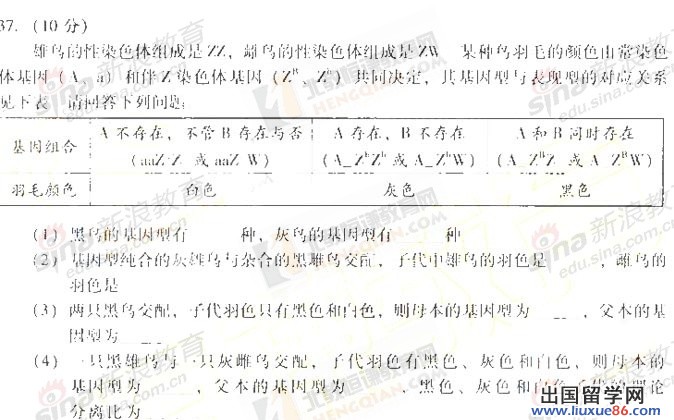 37. (10 分)
雄鸟的性染色体组成是ZZ, 雌鸟的性染色体组成是ZW. 某种鸟羽毛的颜色由常染色
体基因 (A、a) 和伴Z染色体基因 (Zᴮ、Zᵇ) 共同决定, 其基因型与表现型的对应关系
见下表. 请回答下列问题:
基因组合 A 不存在, 不管 B 存在与否 (aaZ Z 或 aaZ W) A 存在, B 不存在 (A_ZᵇZᵇ 或 A_ZᵇW) A 和 B 同时存在 (A_ZᴮZ 或 A_ZᴮW)
羽毛颜色 白色 灰色 黑色
(1) 黑鸟的基因型有 种, 灰鸟的基因型有 种
(2) 基因型纯合的灰雄鸟与杂合的黑雌鸟交配, 子代中雄鸟的羽色是 , 雌鸟的
羽色是
(3) 两只黑鸟交配, 子代羽色只有黑色和白色, 则母本的基因型为 , 父本的基
因型为
(4) 一只黑雄鸟与一只灰雌鸟交配, 子代羽色有黑色、灰色和白色, 则母本的
基因型为 , 父本的基因型为 , 黑色、灰色和白色子代的理论
分离比为
sina新浪教育
edu.sina.com.cn
北京恒谦教育网
HENGQIAN.COM
出国留学网
www.liuxue86.com